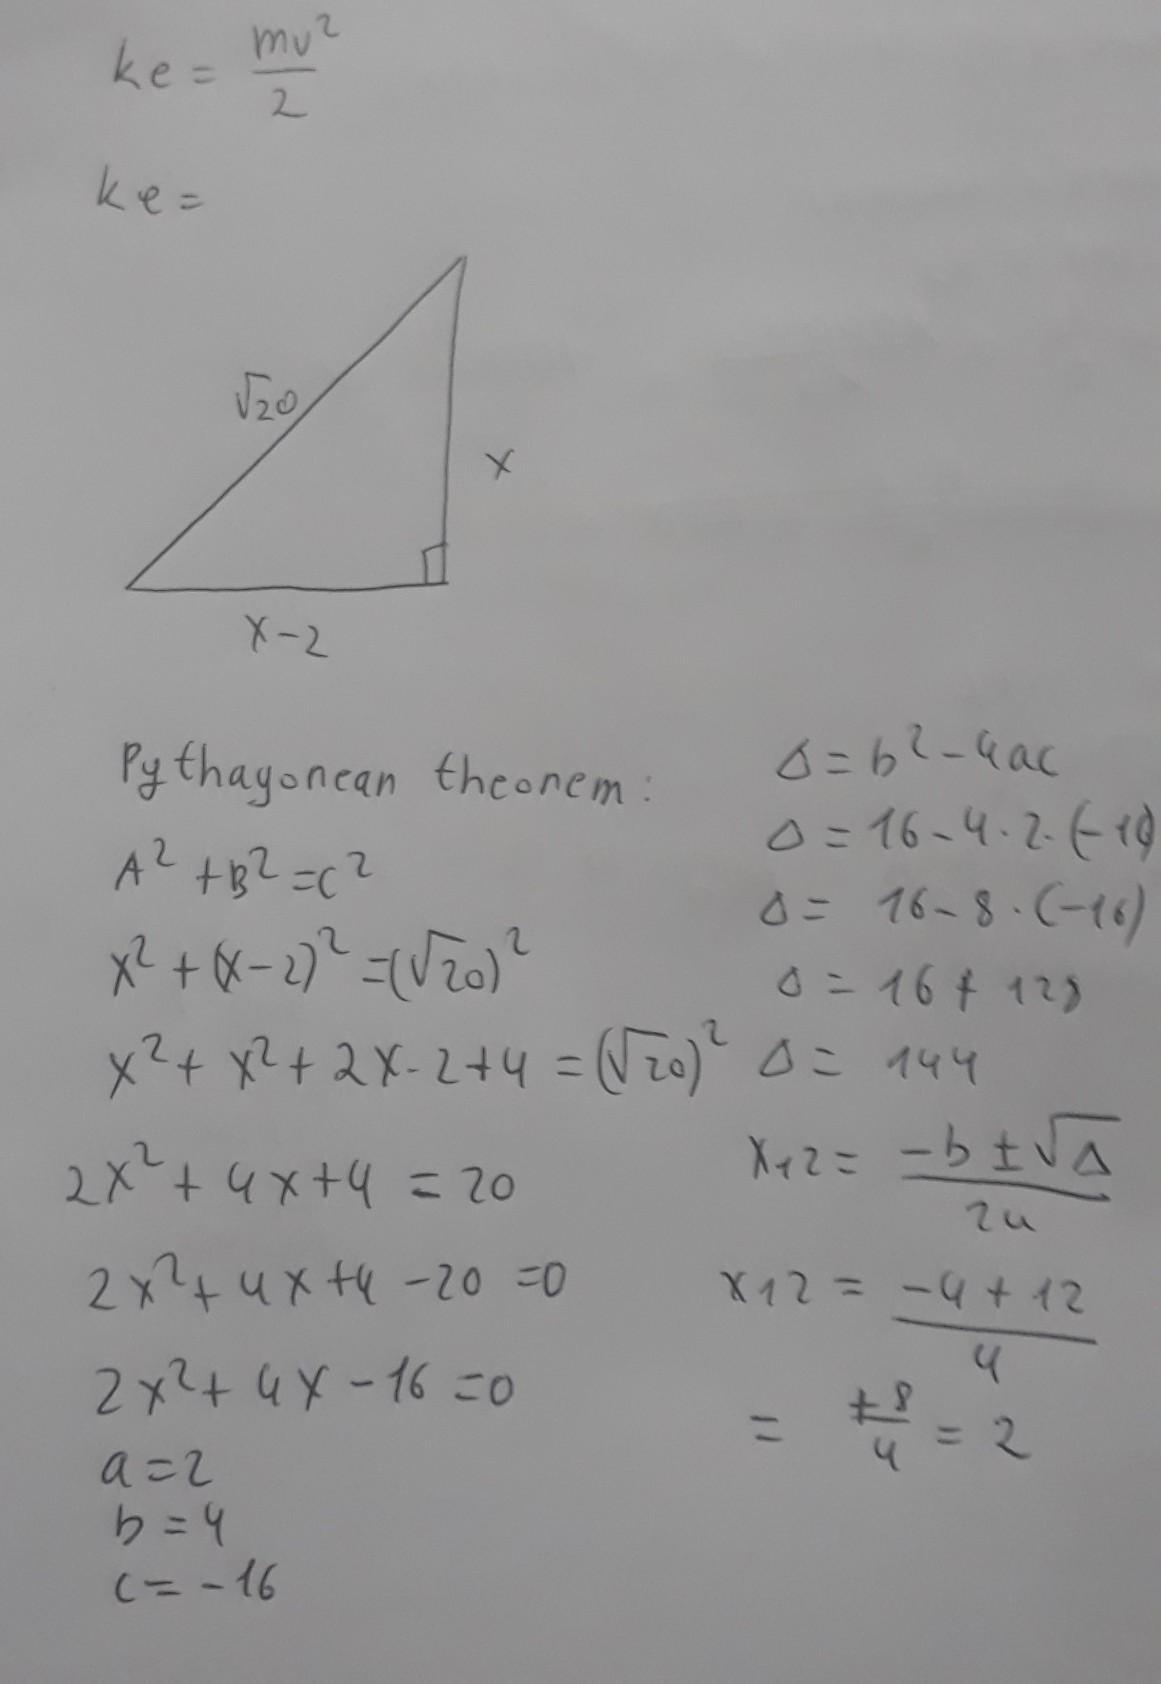 ke = mv²/2
ke =
√20
x
x-2
Pythagonean theonem:
A² + B² = C²
x² + (x-2)² = (√20)²
x² + x² + 2x·2+4 = (√20)²
2x² + 4x+4 = 20
2x² + 4x+4 -20 = 0
2x² + 4x - 16 = 0
a = 2
b = 4
c = -16
Δ = b² - 4ac
Δ = 16 - 4·2·(-16)
Δ = 16 - 8·(-16)
Δ = 16 + 128
Δ = 144
x12 = -b ± √Δ / 2a
x12 = -4 + 12 / 4
= +8/4 = 2